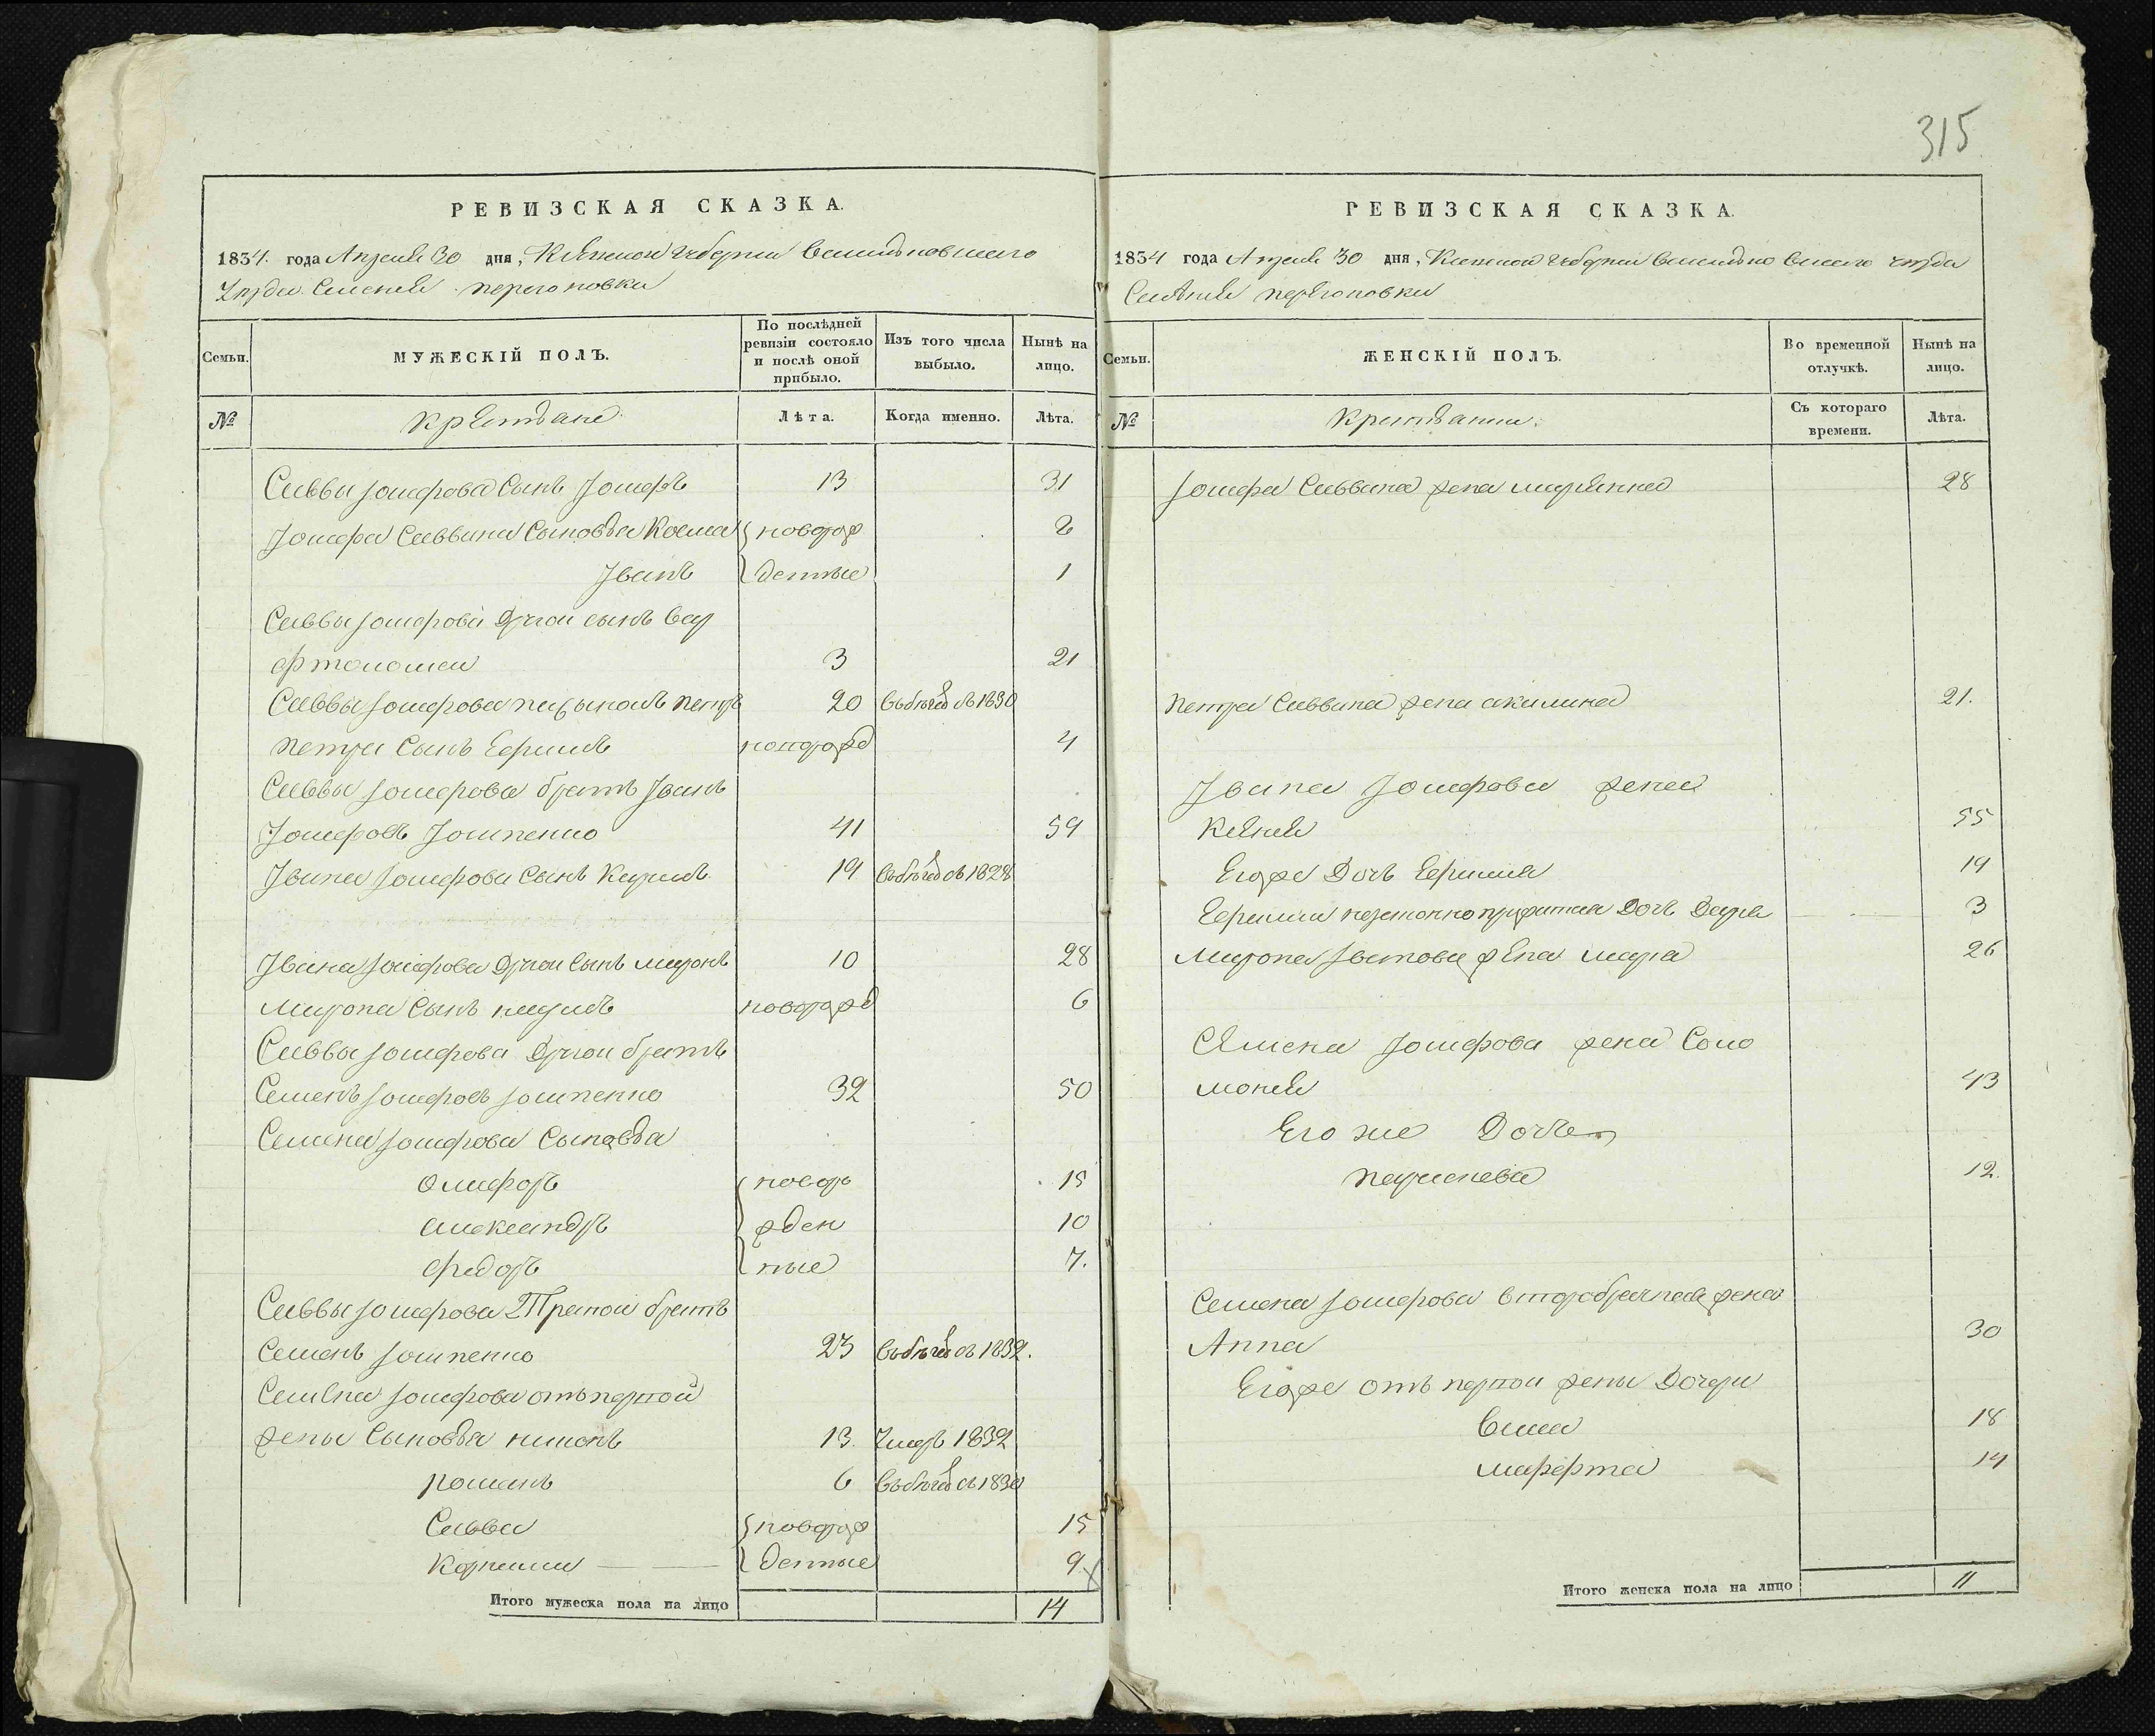 315
РЕВИЗСКАЯ СКАЗКА.
1834. года Апреля 30 дня, Киевской губернии Васильковского
Уезда Селения Перегоновки
Семьи.
МУЖЕСКІЙ ПОЛЪ.
По послѣдней ревизіи состояло и послѣ оной прибыло.
Изъ того числа выбыло.
Нынѣ на лицо.
№
Крестьяне
Лѣта.
Когда именно.
Лѣта.
Саввы Іосифова Сынъ Іосифъ 13 31
Іосифа Саввина Сыновья Косма новорож 2
Іванъ денные 1
Саввы Іосифова другой сынъ Вар
фтоломей 3 21
Саввы Іосифова пасынокъ Петръ 20 въ бѣгах съ 1830
Петра Сынъ Ефимъ новорожд 4
Саввы Іосифова братъ Іванъ
Іосифовъ 41 59
Івана Іосифова Сынъ Кирилъ 19 въ бѣгах съ 1828
Івана Іосифова другой Сынъ Миронъ 10 28
Мирона Сынъ новорожд 6
Саввы Іосифова другой братъ
Семенъ Іосифовъ 32 50
Семена Іосифова Сыновья
Олифоръ новоро 15
Александръ жден 10
Федоръ ные 7.
Саввы Іосифова Третой братъ
Семенъ 23 въ бѣгах съ 1832.
Семена Іосифова отъ первой
жены Сыновья Никонъ 13. Умеръ 1832
Романъ 6 въ бѣгах съ 1830
Савва новорож 15
Корнилий денные 9
Итого мужеска пола на лицо 14
РЕВИЗСКАЯ СКАЗКА.
1834 года Апреля 30 дня, Киевской губернии Васильковского уезда
Селения Перегоновки
Семьи.
ЖЕНСКІЙ ПОЛЪ.
Во временной отлучкѣ.
Нынѣ на лицо.
№
Крестьянки.
Съ котораго времени.
Лѣта.
Іосифа Саввина жена Мариянна 28
Петра Саввина жена Акилина 21.
Івана Іосифова жена
Ксения 55
Егоже Дочь Ефимия 19
Ефимии незаконноприжитая Дочь Дарья 3
Мирона Іванова жена Мария 26
Семена Іосифова жена Соло
мония 43
Его же Дочь
Парасковия 12.
Семена Іосифова второбрачная жена
Анна 30
Егоже отъ первой жены Дочери
18
Марфта 14
Итого женска пола на лицо 11